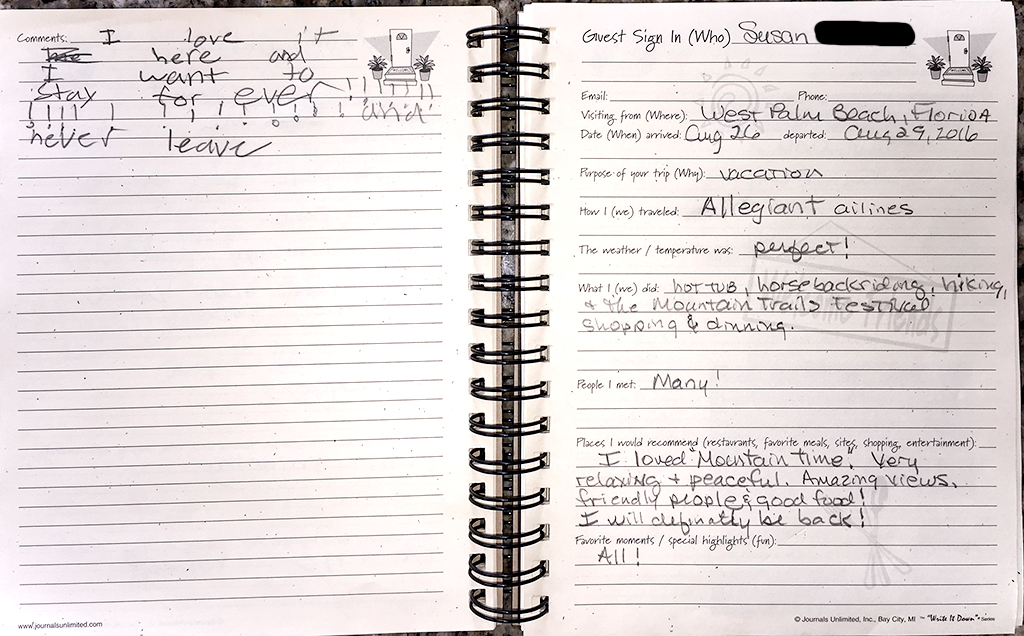 Comments: I love it
here and
I want to
stay for ever!!!!
!!!!!!!!!!!!! and
never leave
www.journalsunlimited.com
Guest Sign In (Who) Susan
Email: Phone:
Visiting from (Where): West Palm Beach, Florida
Date (When) arrived: Aug 26 departed: Aug 29, 2016
Purpose of your trip (Why): vacation
How I (we) traveled: Allegiant ailines
The weather / temperature was: perfect!
What I (we) did: hot tub, horsebackriding, hiking,
& the Mountain Trails Festival,
shopping & dinning.
People I met: Many!
Places I would recommend (restaurants, favorite meals, sites, shopping, entertainment):
I loved "Mountain time". Very
relaxing + peaceful. Amazing views,
friendly people & good food!
I will definatly be back!
Favorite moments / special highlights (fun):
All!
© Journals Unlimited, Inc., Bay City, MI ~ "Write It Down"® Series